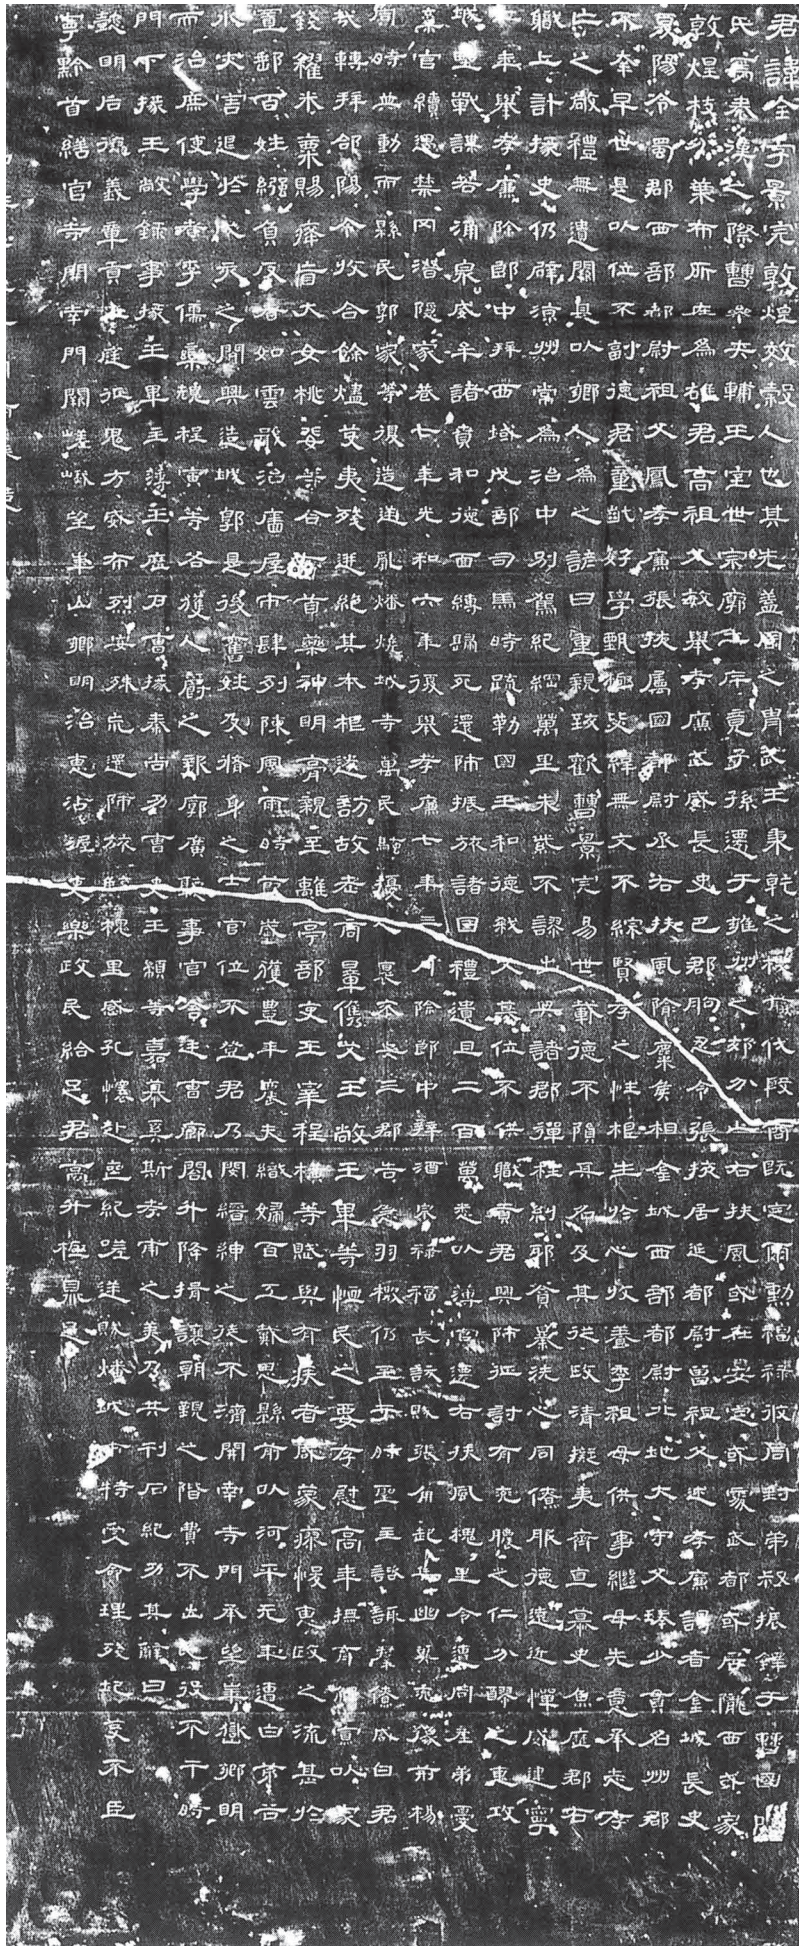 君諱全字景完敦煌效穀人也其先蓋周之冑武王秉乾之機翦伐殷商既定爾勳福祿攸同封弟叔振鐸于曹國因
氏焉秦漢之際曹參夾輔王室世宗廓土斥竟子孫遷于雍州之郊分止右扶風或在安定或處武都或居隴西或家
敦煌枝分葉布所在爲雄君高祖父敏舉孝廉武威長史巴郡朐忍令張掖居延都尉曾祖父述孝廉謁者金城長史
夏陽令蜀郡西部都尉祖父鳳孝廉張掖屬國都尉丞右扶風隃麋侯相金城西部都尉北地大守父琫少貫名州郡
不幸早世是以位不副德君童齔好學甄極毖緯無文不綜賢孝之性根生於心收養季祖母供事繼母先意承志存
亡之敬禮無遺闕是以鄉人爲之諺曰重親致歡曹景完易世載德不隕其名及其從政清擬夷齊直慕史魚歷郡右
職上計掾史仍辟涼州常爲治中別駕紀綱萬里朱紫不謬出典諸郡彈枉糾邪貪暴洗心同僚服德遠近憚威建寧
二年舉孝廉除郎中拜西域戊部司馬時疏勒國王和德弒父篡位不供職貢君興師征討有兗膿之仁分醪之惠攻
城野戰謀若涌泉威牟諸賁和德面縛歸死還師振旅諸國禮遺且二百萬悉以薄官遷右扶風槐里令遭同產弟憂
棄官續遇禁冈潛隱家巷七年光和六年復舉孝廉七年三月除郎中拜酒泉祿福長訞賊張角起兵幽冀兗豫荊楊
同時並動而縣民郭家等復造逆亂燔燒城寺萬民騷擾人褱不安三郡告急羽檄仍至于時聖主諮諏羣僚咸曰君
哉轉拜郃陽令收合餘燼芟夷殘迸絕其本根遂訪故老商量儁艾王敞王畢等恤民之要存慰高年撫育鰥寡以家
錢糴米粟賜癃盲大女桃斐等合七首藥神明膏親至離亭部吏王宰程橫等賦與有疾者咸蒙瘳悛惠政之流甚於
置郵百姓繦負反者如雲戢治廧屋市肆列陳風雨時節歲獲豐年農夫織婦百工戴恩縣前以河平元年遭白茅谷
水災害退於戌亥之間興造城郭是後舊姓及脩身之士官位不登君乃閔縉紳之徒不濟開南寺門承望華嶽鄉明
而治庶使學者李儒欒規程寅等各獲人爵之報廓廣聽事官舍廷曹廊閤升降揖讓朝覲之階費不出民役不干時
門下掾王敞錄事掾王畢主薄王歷戶曹掾秦尚功曹史王顓等嘉慕奚斯考甫之美乃共刊石紀功其辭曰
懿明后德義章貢王庭征鬼方威布烈安殊荒還師旅臨槐里感孔懷赴喪紀嗟逆賊燔城市特受命理殘圮芟不臣
寧黔首繕官寺開南門闕嵯峨望華山鄉明治惠沾渥吏樂政民給足君高升極鼎足